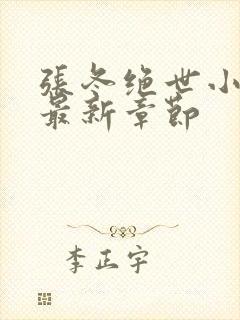 張冬绝世小
最新章節
李正宇